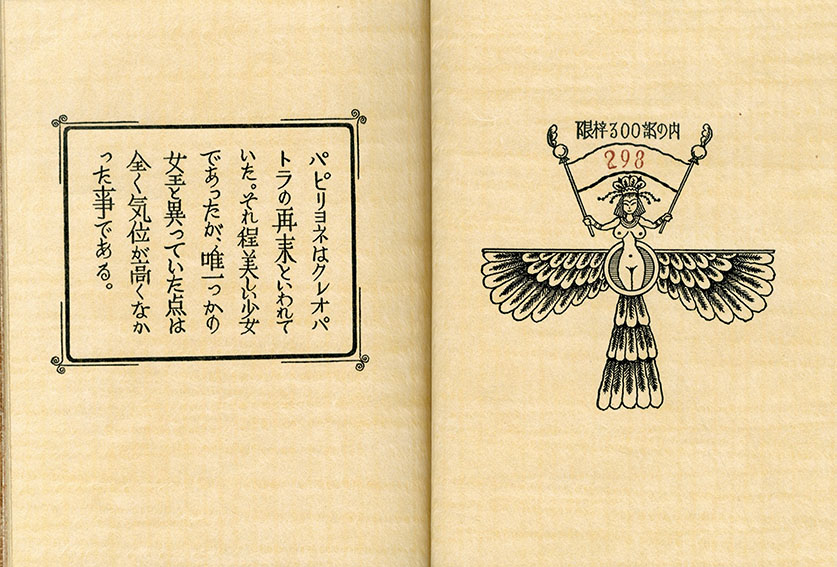 パピリヨネはクレオパ
トラの再末といわれて
いた。それ程美しい少女
であったが、唯一つかの
女王と異っていた点は
全く気位が高くなか
った事である。
限梓300部の内
298